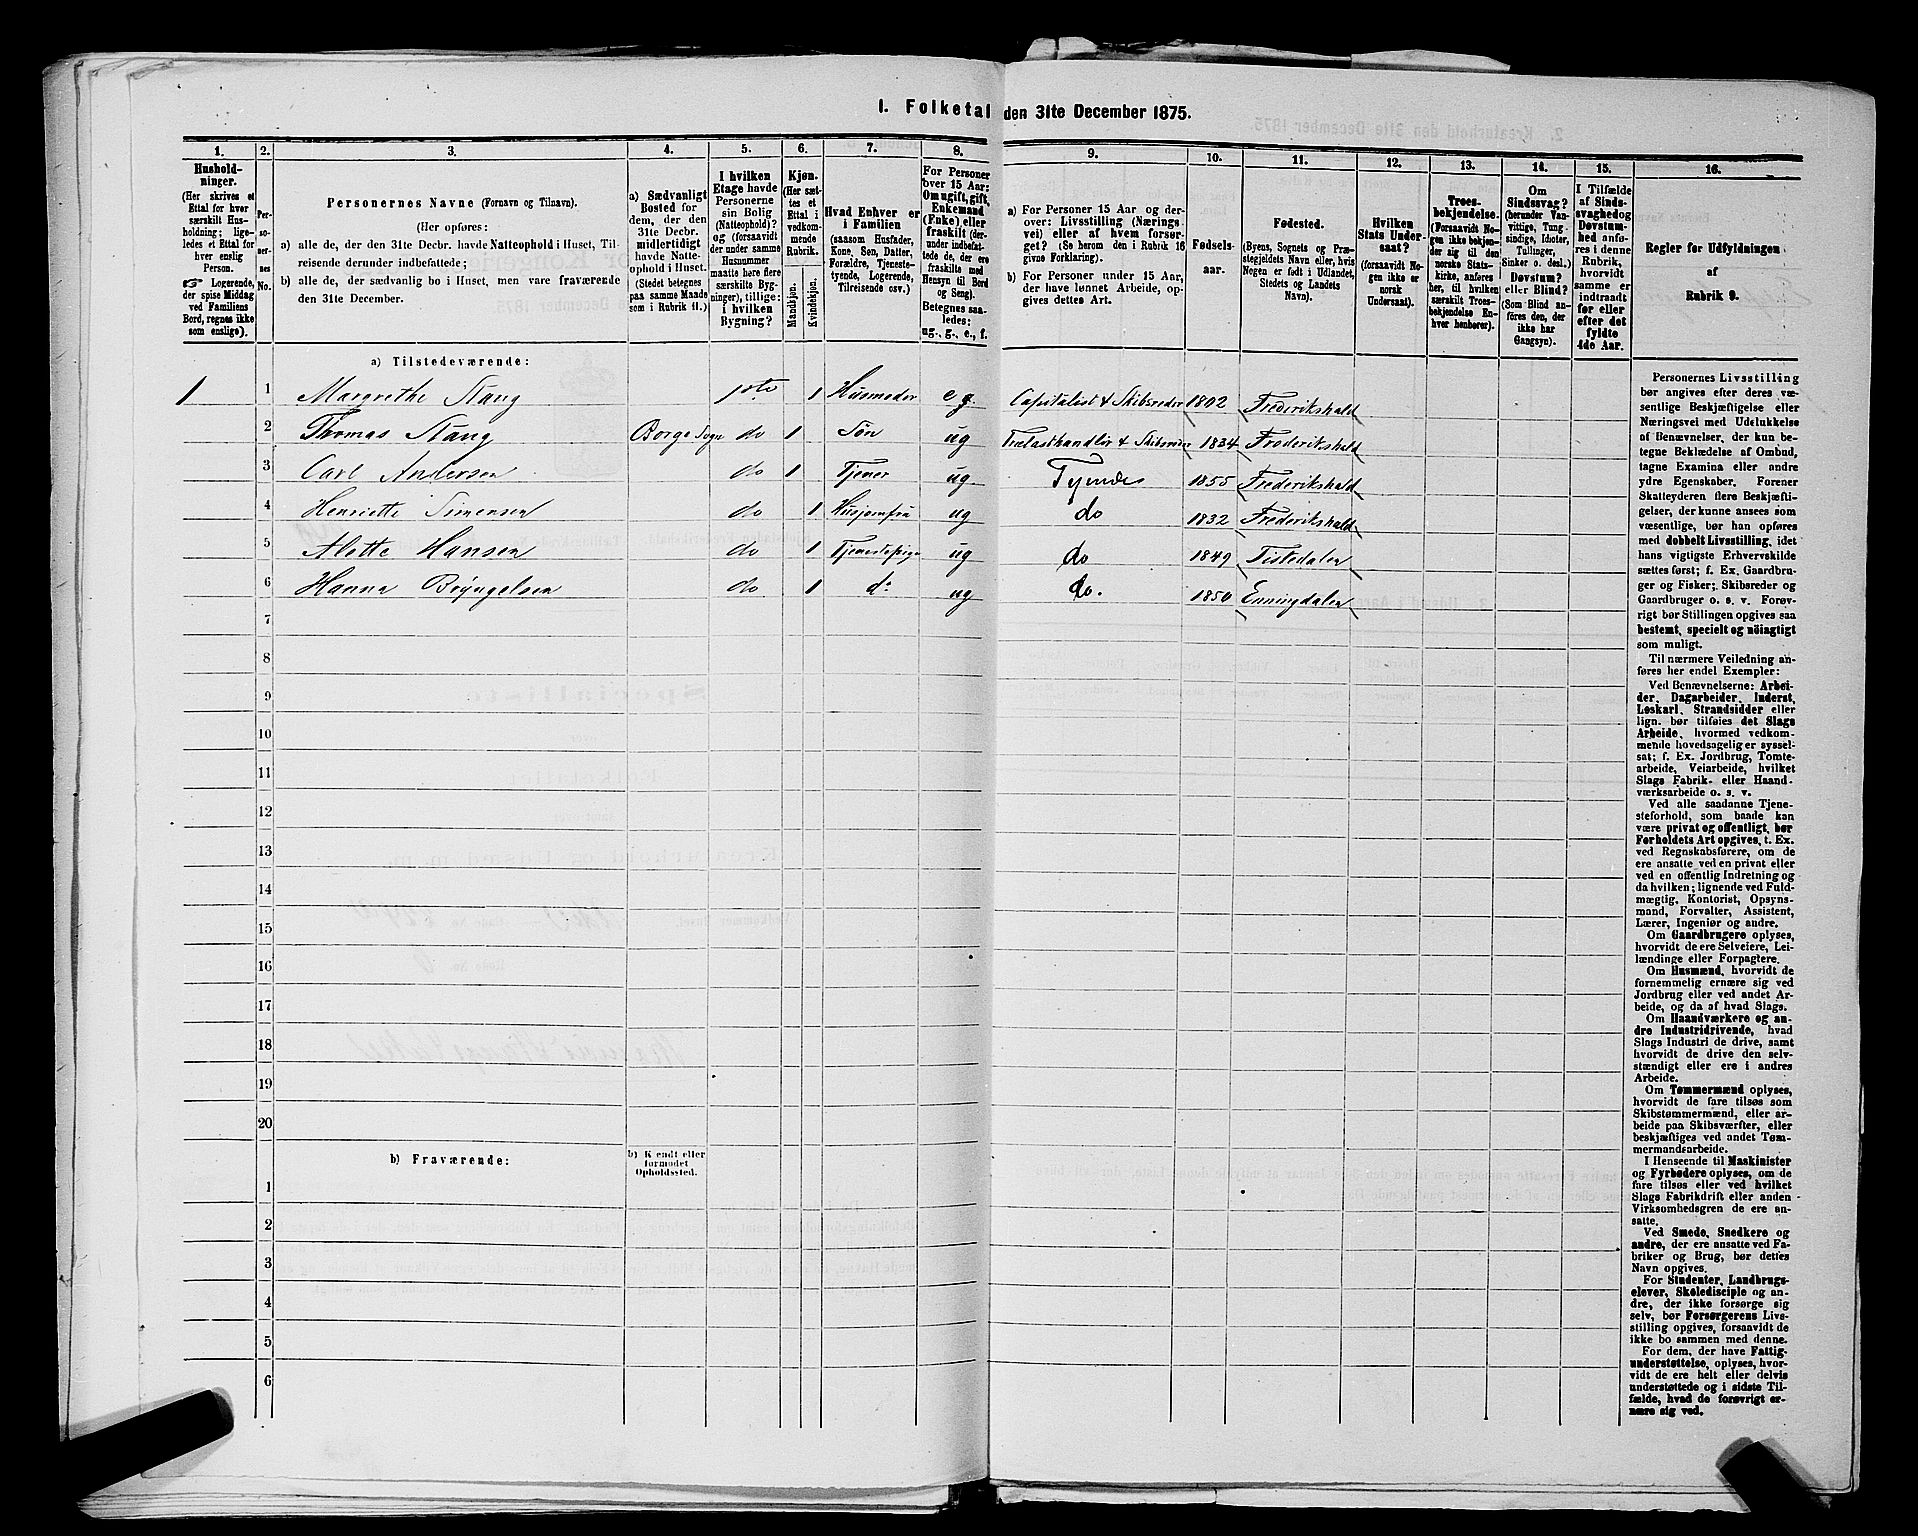 1. Folketal den 31te December 1875.
1. 2. 3. 4. 5. 6. 7. 8. 9. 10. 11. 12. 13. 14. 15. 16.
Hushold-
ninger.
(Her skrives et
Ettal for hver
særskilt Hus-
holdning; lige-
ledes et Ettal for
hver enslig
Person.
☞ Logerende,
der spise Middag
ved Familiens
Bord, regnes ikke
som enslige).
Per-
so-
ner-
nes
No.
Personernes Navne (Fornavn og Tilnavn).
(Her opføres:
a) alle de, der den 31te Decbr. havde Natteophold i Huset, Til-
reisende derunder indbefattede;
b) alle de, der sædvanlig bo i Huset, men vare fraværende
den 31te December.
a) Sædvanligt
Bosted for
dem, der den
31te Decbr.
midlertidigt
havde Natte-
ophold i Huset.
(Stedet betegnes
paa samme Maade
som i Rubrik 11.)
I hvilken
Etage havde
Personerne
sin Bolig
(Natteophold)?
og (forsaavidt
der under samme
Husnummer
maatte høre flere
særskilte Byg-
ninger), tillige:
i hvilken
Bygning?
Kjøn.
(Her sæt-
tes et
Ettal i
vedkom-
mende
Rubrik.
Mandkjøn.
Kvindekjøn.
Hvad Enhver er
i Familien
(saasom Husfader,
Kone, Søn, Datter,
Forældre, Tjeneste-
tyende, Logerende,
Tilreisende osv.)
For Personer
over 15 Aar:
Om ugift, gift,
Enkemand
(Enke) eller
fraskilt (der-
under indbefat-
tede de, der ere
fraskilte med
Hensyn til Bord
og Seng).
Betegnes saa-
ledes:
ug., g., e., f.
a) For Personer 15 Aar og der-
over: Livsstilling (Nærings-
vei) eller af hvem forsør-
get? (Se herom den i Rubrik 16
givne Forklaring).
b) For Personer under 15 Aar,
der have lønnet Arbeide, op-
gives dettes Art.
Fødsels-
aar.
Fødested.
(Byens, Sognets og Præ-
stegjeldets Navn eller, hvis
Nogen er født i Udlandet,
Stedets og Landets
Navn).
Hvilken
Stats Under-
saat?
(forsaavidt No-
gen ikke er
norsk
Undersaat).
Troes-
bekjendelse.
(Forsaavidt No-
gen ikke bekjen-
der sig til den
norske Stats-
kirke, anføres
her, til hvilken
særskilt Troes-
bekjendelse En-
hver henhører).
Om
Sindssvag?
(herunder Van-
vittige, Tung-
sindige, Idioter,
Tullinger,
Sinker o. desl.)
Døvstum?
eller Blind?
(Som Blind an-
føres den, der
ikke har
Gangsyn).
I Tilfælde
af Sinds-
svaghed og
Døvstum-
hed anfø-
res i denne
Rubrik,
hvorvidt
samme er
indtraadt
før eller
efter det
fyldte
4de Aar.
Regler for Udfyldningen
af
Rubrik 9.
a) Tilstedeværende:
1 1 Margrethe Stang 1ste 1 Husmoder e g. Capitalist & Skibsreder 1802 Frederikshald
2 Thomas Stang Borge Sogn do 1 Søn ug Trælasthandler & Skibsreder 1834 Frederikshald
3 Carl Andersen do 1 Tjener ug Tyende 1855 Frederikshald
4 Henriette Simensen do 1 Husjomfru ug do 1832 Frederikshald
5 Alette Hansen do 1 Tjenestepige ug do 1849 Tistedalen
6 Hanna Bryngelsen do 1 do ug do. 1850 Enningdalen
7
8
9
10
11
12
13
14
15
16
17
18
19
20
b) Fraværende: b) Kjendt eller
formodet
Opholdssted.
1
2
3
4
5
6
Personernes Livsstilling
bør angives efter deres væ-
sentlige Beskjæftigelse eller
Næringsvei med Udelukkelse
af Benævnelser, der kun be-
tegne Beklædelse af Ombud,
tagne Examina eller andre
ydre Egenskaber. Forener
Skatteyderen flere Beskjæfti-
gelser, der kunne ansees som
væsentlige, bør han opføres
med dobbelt Livsstilling, idet
hans vigtigste Erhvervskilde
sættes først; f. Ex. Gaardbru-
ger og Fisker; Skibsreder og
Gaardbruger o. s. v. Forøv-
rigt bør Stillingen opgives saa
bestemt, specielt og nøiagtigt
som muligt.
Til nærmere Veiledning an-
føres her endel Exempler:
Ved Benævnelserne: Arbei-
der, Dagarbeider, Inderst,
Løskarl, Strandsidder eller
lign. bør tilføies det Slags
Arbeide, hvormed vedkom-
mende hovedsagelig er syssel-
sat; f. Ex. Jordbrug, Tomte-
arbeide, Veiarbeide, hvilket
Slags Fabrik- eller Haand-
værksarbeide o. s. v.
Ved alle saadanne Tjene-
steforhold, som baade kan
være privat og offentligt, bør
Forholdets Art opgives, t. Ex.
ved Regnskabsførere, om de
ere ansatte ved en privat eller
ved en offentlig Indretning og
da hvilken; lignende ved Fuld-
mægtig, Kontorist, Opsyns-
mand, Forvalter, Assistent,
Lærer, Ingeniør og andre.
Om Gaardbrugere oplyses,
hvorvidt de ere Selveiere, Lei-
lændinge eller Forpagtere.
Om Husmænd, hvorvidt de
fornemmelig ernære sig ved
Jordbrug eller ved andet Ar-
beide, og da af hvad Slags.
Om Haandværkere og an-
dre Industridrivende, hvad
Slags Industri de drive, samt
hvorvidt de drive den selv-
stændigt eller ere i andres
Arbeide.
Om Tømmermænd oplyses,
hvorvidt de fare tilsøs som
Skibstømmermænd, eller ar-
beide paa Skibsværfter, eller
beskjæftiges ved andet Tøm-
mermandsarbeide.
I Henseende til Maskinister
og Fyrbødere oplyses, om de
fare tilsøs eller ved hvilket
Slags Fabrikdrift eller anden
Virksomhedsgren de ere an-
satte.
Ved Smede, Snedkere og
andre, der ere ansatte ved Fa-
briker og Brug, bør dettes
Navn opgives.
For Studenter, Landbrugs-
elever, Skoledisciple og an-
dre, der ikke forsørge sig
selv, bør Forsørgerens Livs-
stilling opgives, forsaavidt de
ikke bo sammen med denne.
For dem, der have Fattig-
understøttelse, oplyses, hvor-
vidt de ere helt eller delvis
understøttede og i sidste Til-
fælde, hvad de forøvrigt er-
nære sig ved.